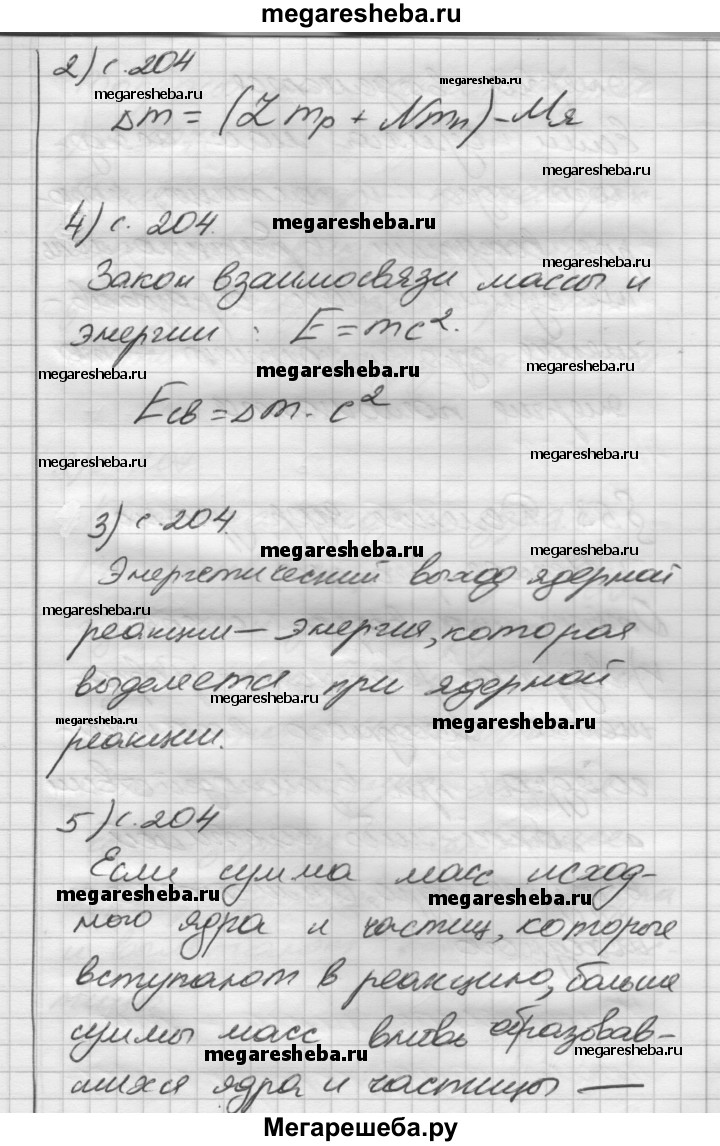 megaresheba.ru
2) с. 204
megaresheba.ru
megaresheba.ru
Δm = (Zmp + Nmn) - Mя
megaresheba.ru
4) с. 204.
megaresheba.ru
Закон взаимосвязи массы и
megaresheba.ru
энергии : E = mc².
megaresheba.ru
megaresheba.ru
megaresheba.ru
Eсв = Δm · c²
megaresheba.ru
megaresheba.ru
3) с. 204.
megaresheba.ru
megaresheba.ru
Энергетический выход ядерной
megaresheba.ru
реакции — энергия, которая
выделяется при ядерной
megaresheba.ru
megaresheba.ru
megaresheba.ru
реакции.
5) с. 204
Если сумма масс исход-
megaresheba.ru
megaresheba.ru
ного ядра и частиц, которые
вступают в реакцию, больше
суммы масс вновь образовав-
megaresheba.ru
megaresheba.ru
шихся ядра и частицы —
Мегарешеба.ру